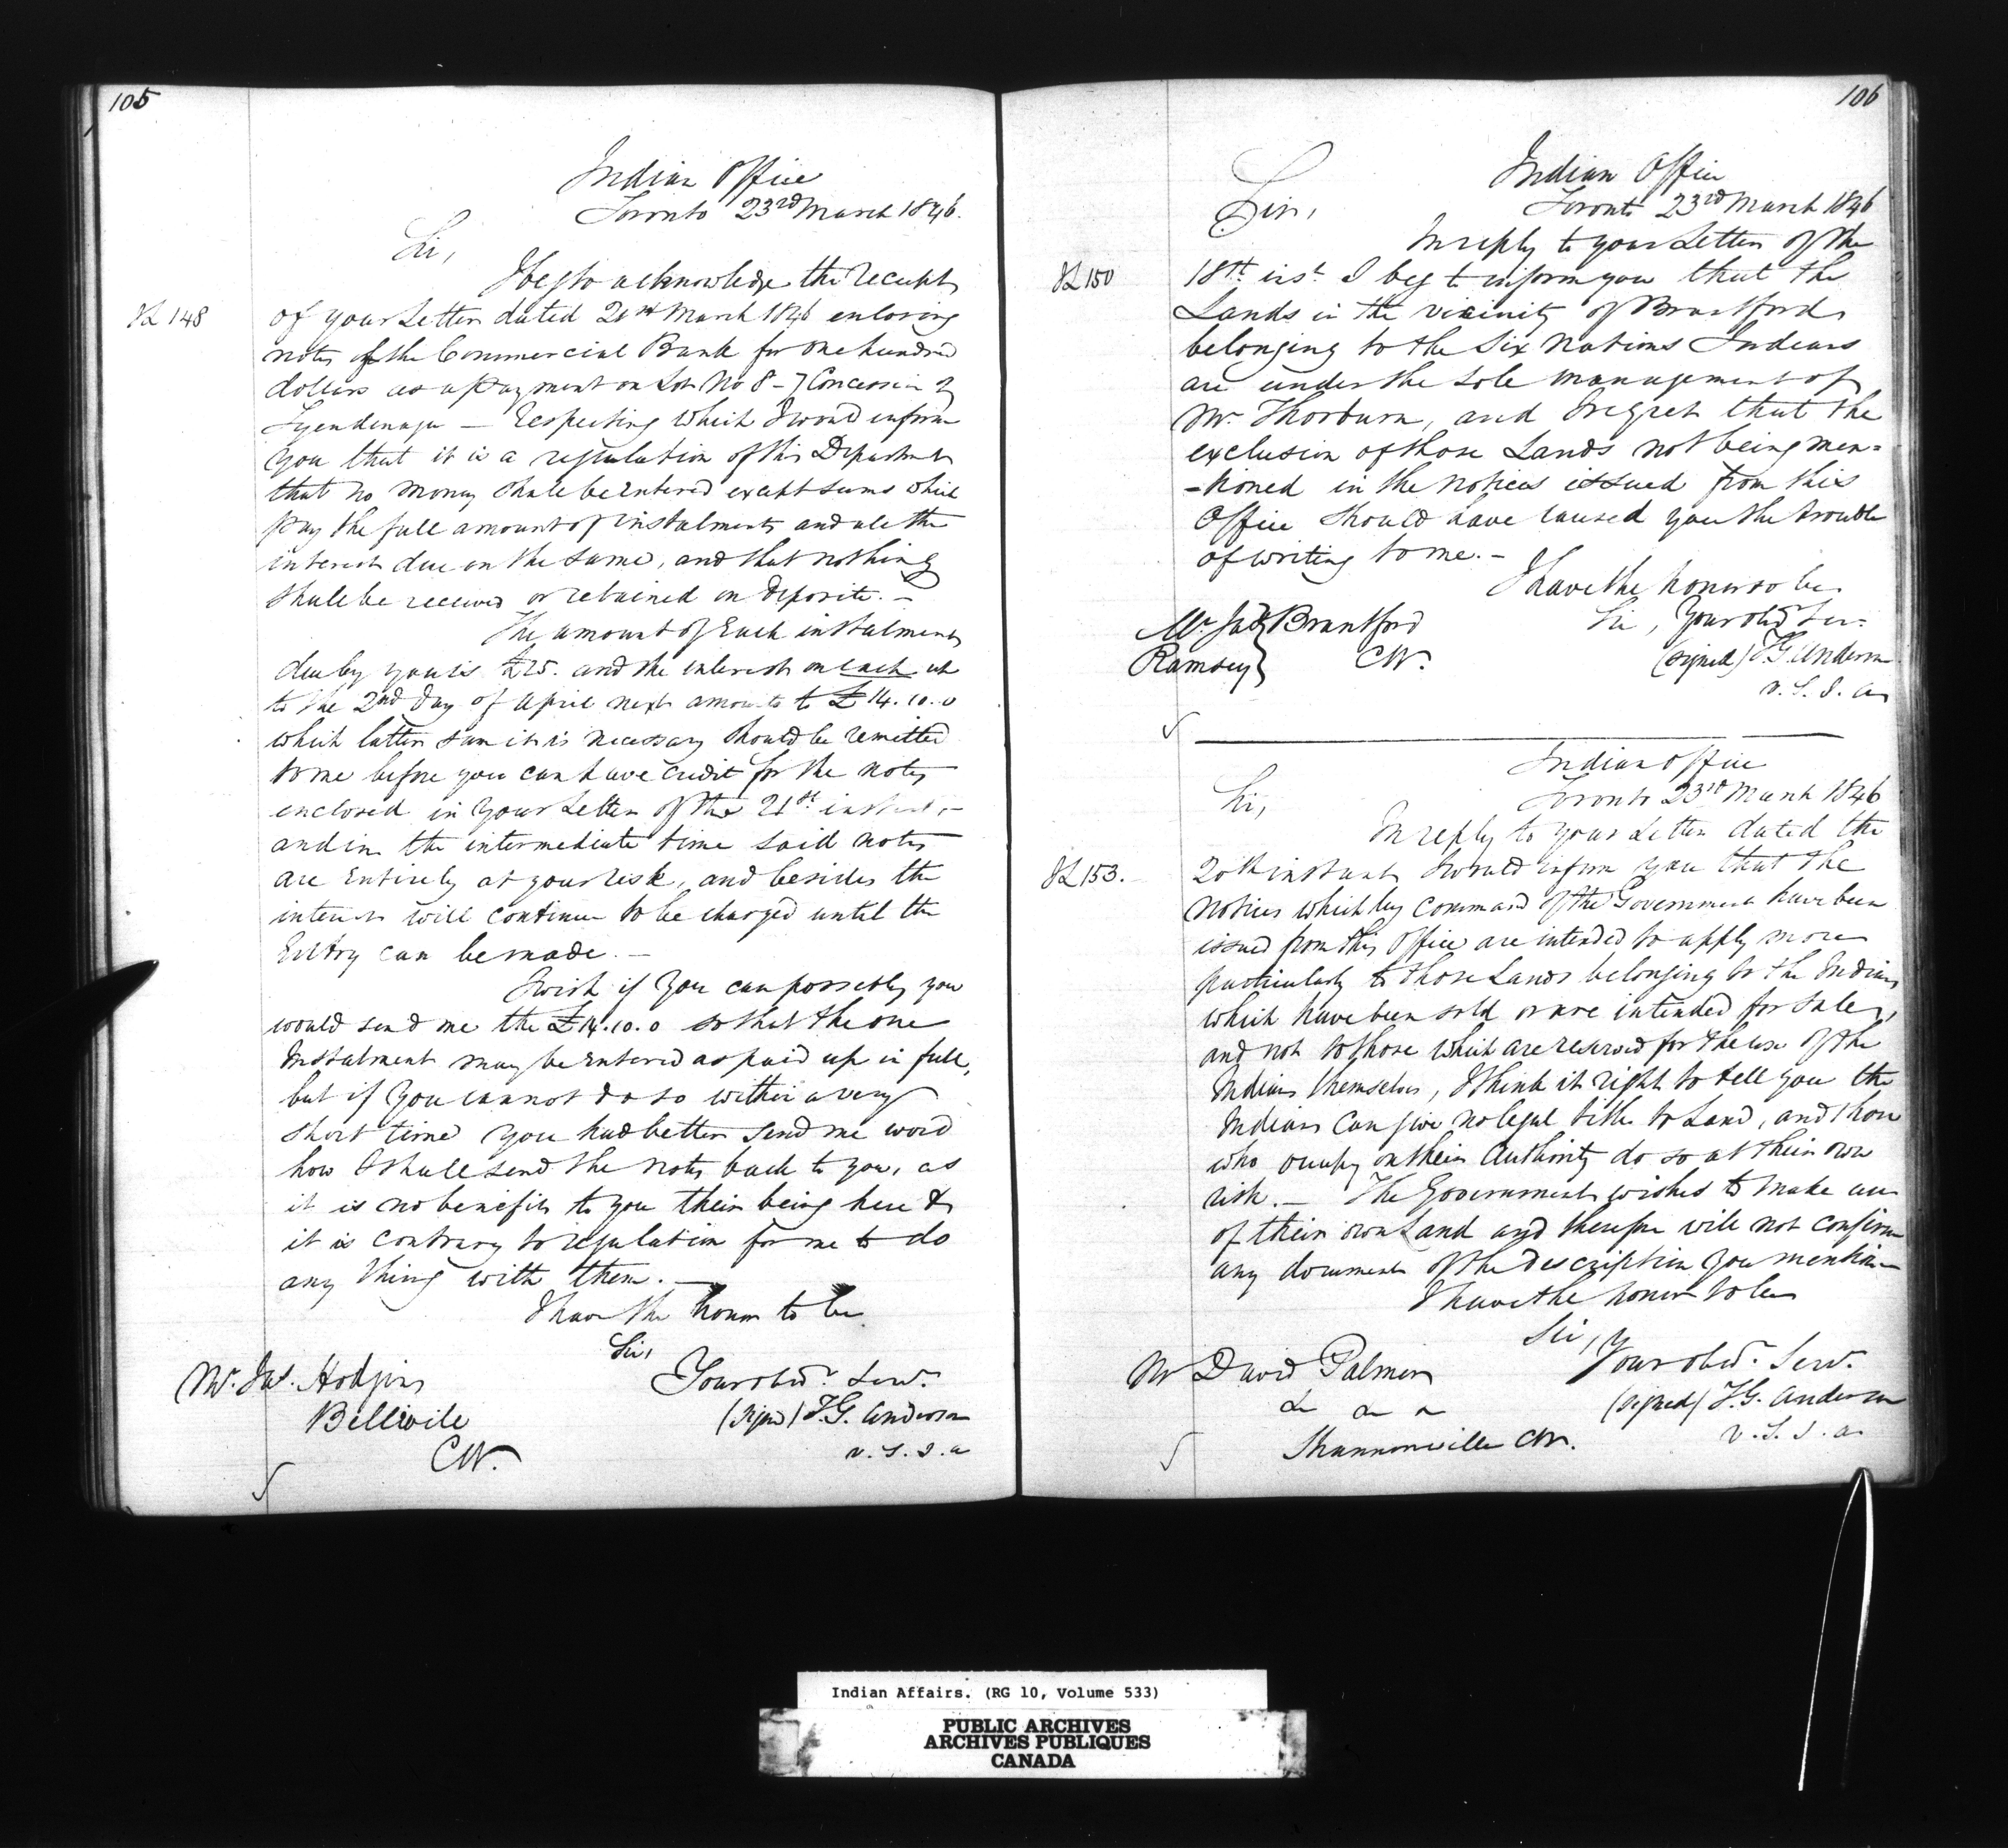 105
Indian Office
Toronto 23rd March 1846.
Sir,
I beg to acknowledge the receipt
JL 148
of your Letter dated 21st March 1846 enclosing
notes of the Commercial Bank for one hundred
dollars as a payment on Lot No 8 - 7 Concession of
Tyendenaga — Respecting which I would inform
you that it is a regulation of this Department
that no money shall be entered except sums which
pay the full amount of instalments and all the
interest due on the same, and that nothing
shall be received or retained on deposite. —
The amount of Each instalment
due by you is £25. and the interest on each up
to the 2nd day of April next amounts to £14.10.0
which latter sum it is necessary should be remitted
to me before you can have credit for the notes
enclosed in your Letter of the 21st instant, —
and in the intermediate time said notes
are Entirely at your risk, and besides the
interest will continue to be charged until the
Entry can be made. —
I wish if you can possibly you
would send me the £14.10.0 so that the one
Instalment may be Entered as paid up in full,
but if you cannot do so within a very
short time you had better send me word
how I shall send the notes back to you, as
it is no benefit to you their being here &
it is contrary to regulation for me to do
any thing with them. —
I have the honor to be
Sir,
Your obdt. Servt.
(Signed) T.G. Anderson
V. S. I. A
Mr. Jas. Hodgins
Bellevile
CW.
106
Indian Office
Toronto 23rd March 1846
Sir,
In reply to your Letter of the
JL 150
18th inst I beg to inform you that the
Lands in the vicinity of Brantford
belonging to the Six Nations Indians
are under the sole management of
Mr. Thorburn, and I regret that the
exclusion of those Lands not being men=
=tioned in the notices issued from this
Office should have caused you the trouble
of writing to me. —
I have the honor to be
Sir, Your obdt Ser.
(signed) T G Anderson
V. S. I. A
Mr. Brantford
Ramsey CW.
Indian Office
Toronto 23rd March 1846
Sir,
In reply to your Letter dated the
JL 153.
20th instant I would inform you that the
notices which by command of the Government have been
issued from this Office are intended to apply more
particularly to those Lands belonging to the Indians
which have been sold or are intended for sale,
and not to those which are reserved for the use of the
Indians themselves, I think it right to tell you the
Indians can give no legal title to Land, and those
who occupy on their Authority do so at their own
risk. — The Government wishes to make use
of their own Land and therefore will not confirm
any document of the description you mention
I have the honor to be
Sir,
Your obdt. Servt.
(signed) T.G. Anderson
V. S. I. A
Mr David Palmer
Shannonville CW.
Indian Affairs. (RG 10, Volume 533)
PUBLIC ARCHIVES
ARCHIVES PUBLIQUES
CANADA